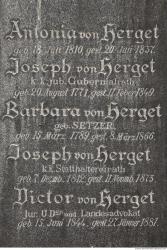 Antonia von Herget
geb. 18. Juli 1810, gest. 20. Juli 1837.
Joseph von Herget
k.k. jub. Gubernialrath
geb. 20. August 1771, gest. 11. Feber 1849.
Barbara von Herget
geb. SETZER.
geb. 15. März 1789, gest. 8. März 1866.
Joseph von Herget
k.k. Statthaltereirath
geb. 7. Dezemb. 1812, gest. 11. Novmb. 1873.
Victor von Herget
Jur. U. Dr. und Landesadvokat
geb. 15. Juni 1844, gest. 27. Jänner 1881.